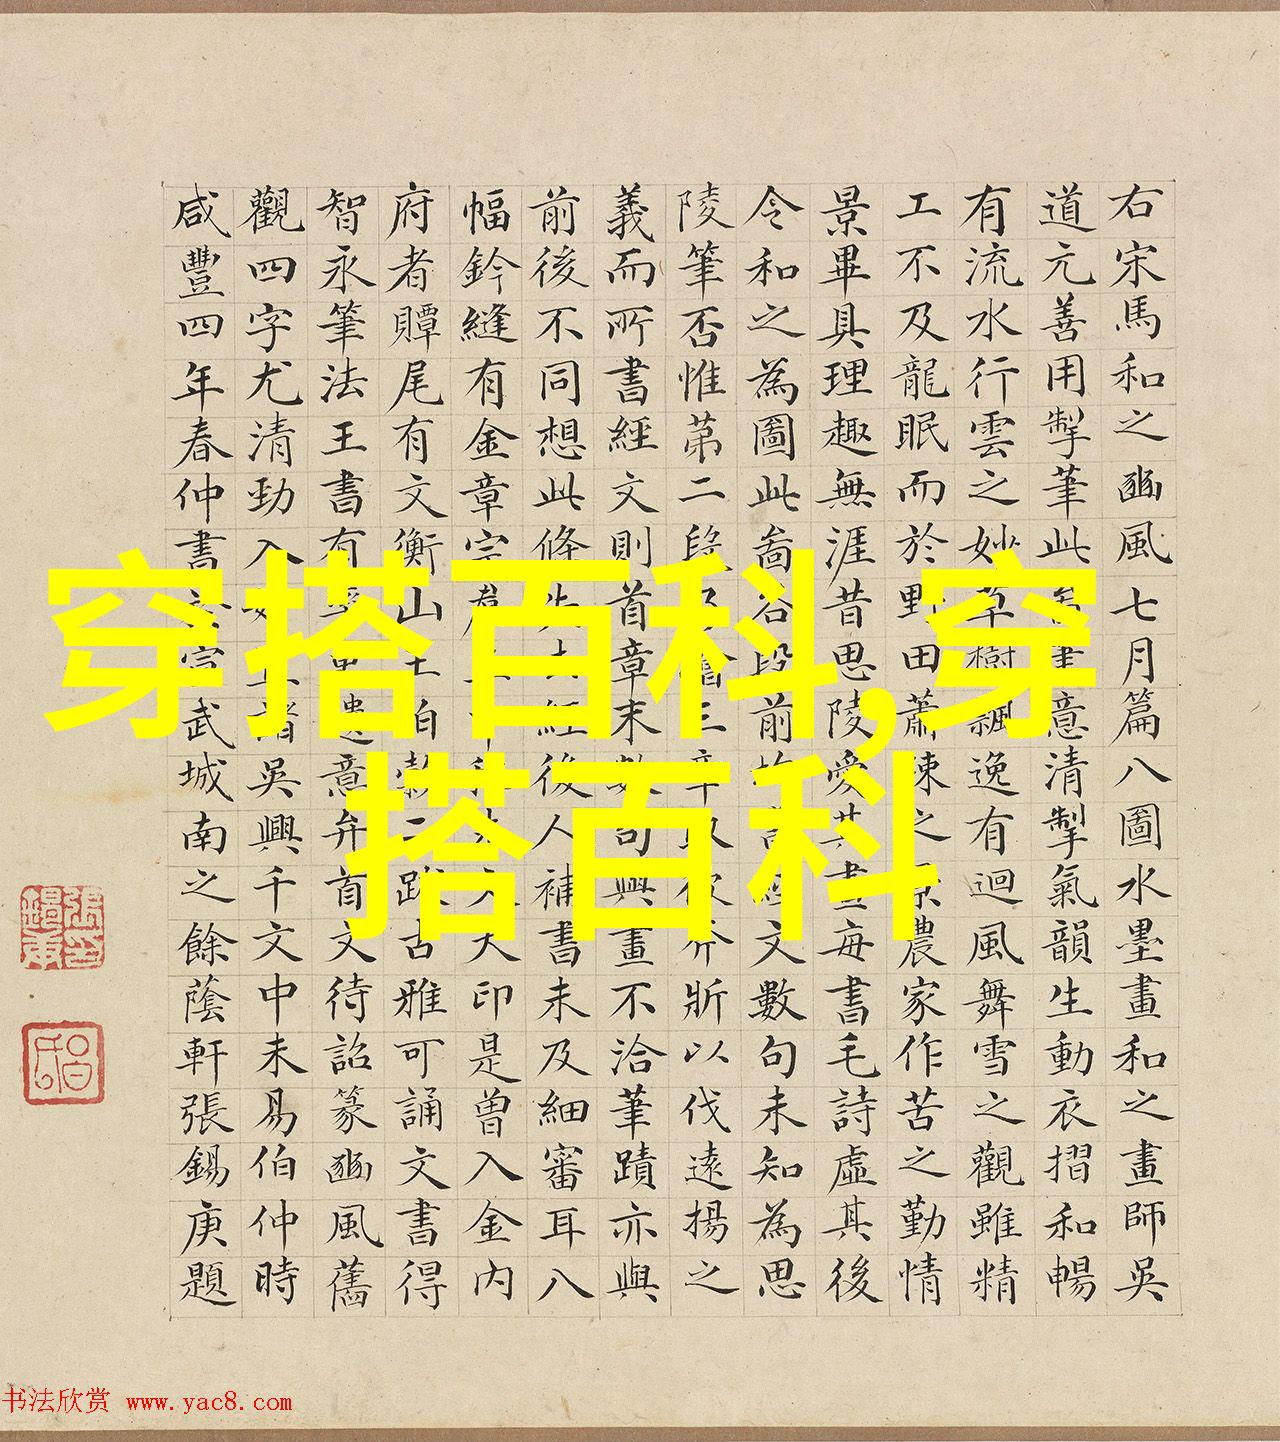 右宋馬和之豳風七月篇八圖水墨畫和之畫師吳
道元善用掣筆此意清掣氣韻生動衣摺和暢
有流水行雲之妙草樹飄逸有迴風舞雪之觀雖精
工不及龍眠而於野田蕭疎之景農家作苦之勤情
景畢具理趣無涯昔思陵愛其畫每書毛詩虛其後
令和之為圖此啚各段前文數句未知為思
陵筆否惟第二段三章取彼斧斨以伐遠揚之
義而所書經文則首章末數句與畫不洽筆蹟亦與
前後不同想此條失去經後人補書未及細審耳八
幅鈐縫有金章宗文大印是曾入金內
府者贉尾有文衡山王伯穀二跋古雅可誦文書得
智永筆法王書有遺意弁首文待詔篆豳風舊
觀四字尤清勁入諸吳興千文中未易伯仲時
咸豐四年春仲書於宣武城南之餘蔭軒張錫庚題
穿搭百科,穿
搭百科
书法欣赏 www.yac8.com